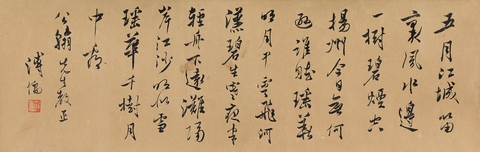 五月江城笛
裏風水邊
一樹碧煙空
揚州今日無何
遜誰賦瑤華
明月中雲飛河
漢碧生寒夜半
輕舟下遠灘隔
岸江沙明似雪
瑤華千樹月
中看
公翰先生教正
溥